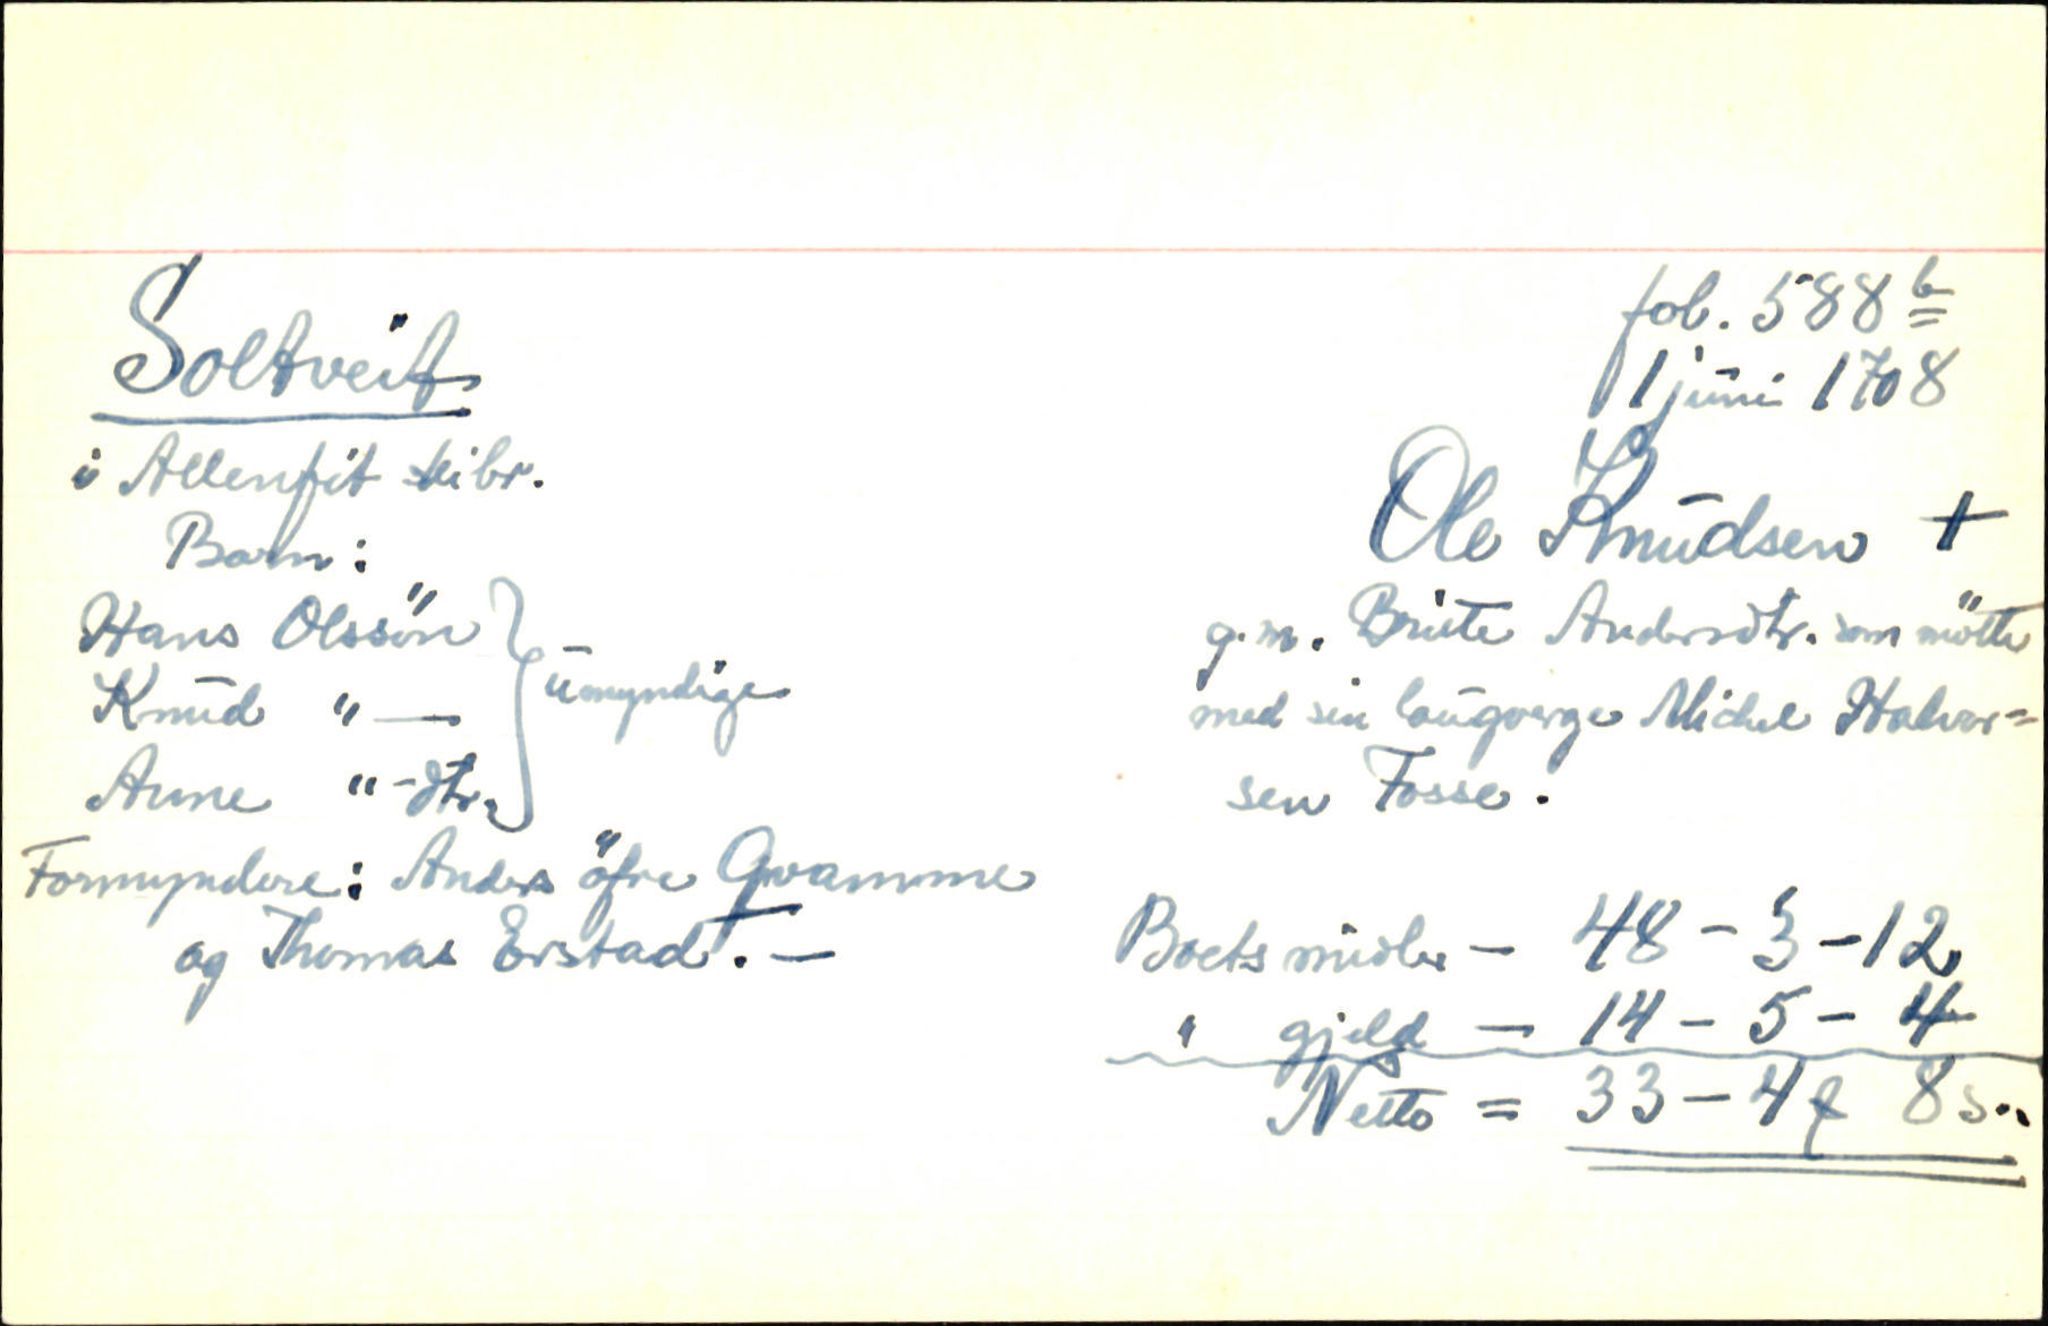 Soltveit
i Allenfit skibr.
Barn:
Hans Olssön
Knud " —
Anne " -dtr.
umyndige
Formyndere: Anders öfre Qvamme
og Thomas Erstad. —
fol. 588 b
1 juni 1708
Ole Knudsen +
g.m. Britte Andersdtr. som mötte
med sin laugverge Michel Halvor=
sen Fosse.
Boets midler — 48 - 3 - 12
" gjeld — 14 - 5 - 4
Netto = 33 - 4 f 8 s.